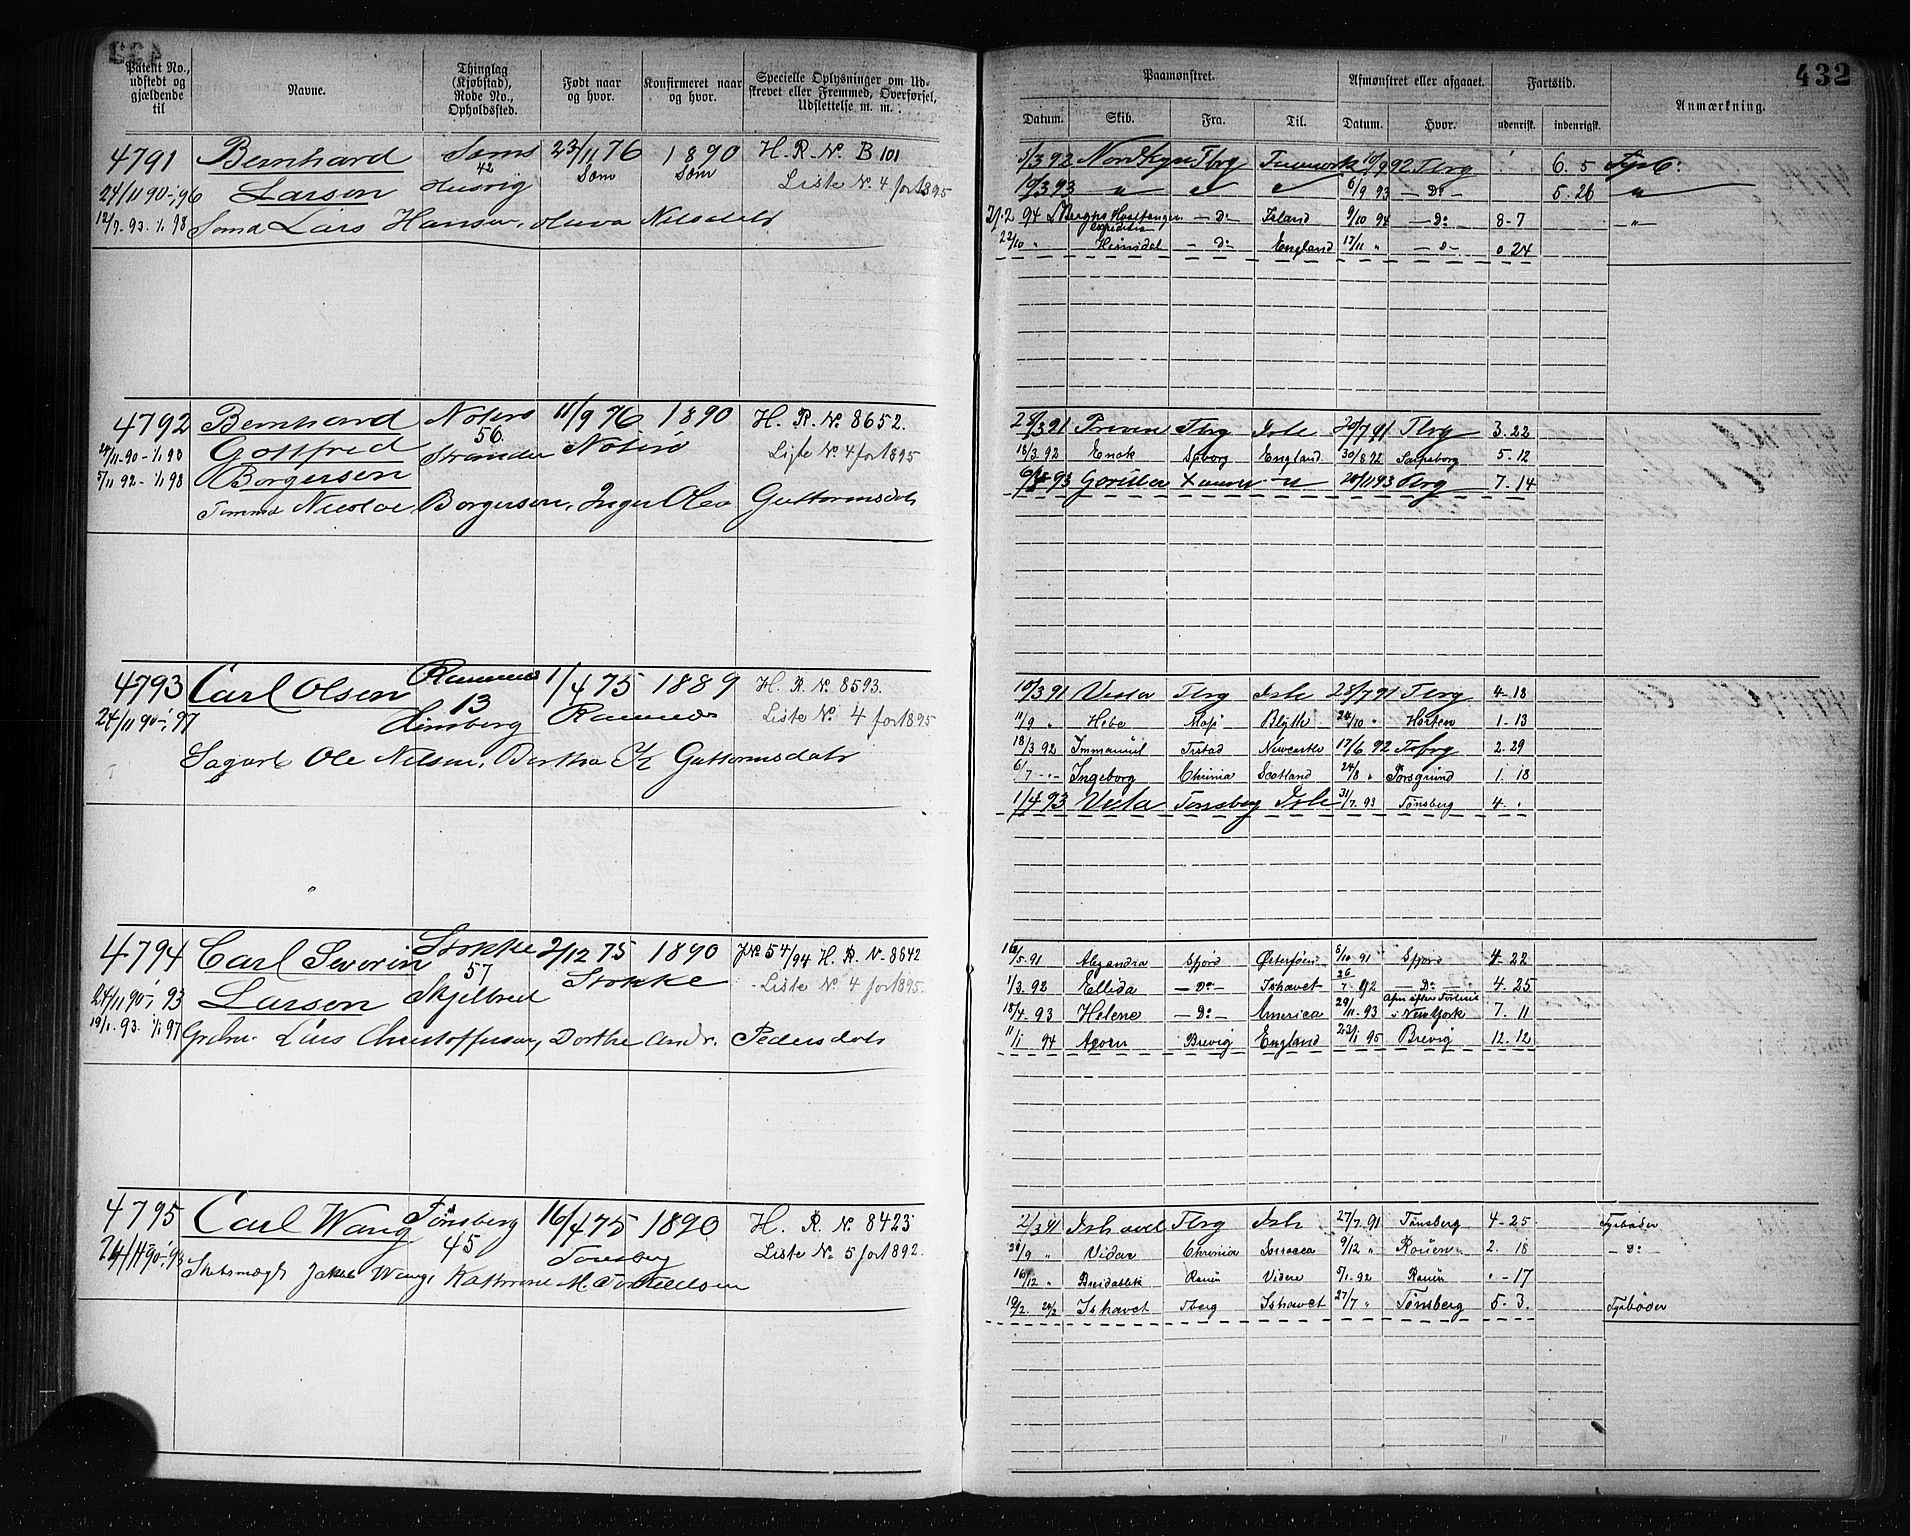 432
Patent No., udstedt og gjældende til
Navne.
Thinglag (Kjøbstad), Rode No., Opholdssted.
Født naar og hvor.
Konfirmeret naar og hvor.
Specielle Oplysninger om Udskrevet eller Fremmed, Overførsel, Udslettelse m. m.
Paamønstret.
Afmønstret eller afgaaet.
Fartstid.
Anmærkning.
Datum. Skib. Fra. Til. Datum. Hvor. udenrigsk. indenrigsk.
4791 Bernhard Sems 23/11 76 1890 H. R. No. B 101
24/11 90-1/1 96 Larsen 42 Husvig Sem Sem Liste No. 4 for 1895
12/9 93. 1/1 98 Lars Hansen, Nilsdatr
5/3 92 Nordkyn Tbrg 10/9 92 Tbrg 6. 5
10/3 93 " 6/9 93 — Do — 5. 26 "
21.2 94 — Do Island 9/10 94 — Do 8-7 — " —
expedition
22/10 " Heimdal — Do England 17/11 " — D — 0 24
4792 Bernhard Nøterø 11/9 76 1890 H. R. No. 8652.
Gottfred 56. Nøterø Liste No. 4 for 1895
24/11-90-1/1 98
5/11 92-1/1 98 Borgersen
Nicolai Borgersen, Inger Olea Guttormsdatr
21 Tbrg Ishi 20/7 91 Tbrg 3. 22
16/3 92 Enok England 30/8 92 Sarpsborg 5. 12
93 20/11 93 Tbrg 7. 14
4793 Carl Olsen Ramnes 1/4 75 1889 H. R. No. 8593.
24/11 90-1/1 97 13 Linsberg Ramnes Liste No. 4 for 1895
Ole Nilsen, Berthe K Guttormsdatr
10/3 91 Vesta Tbrg Ishi 28/7 91 Tbrg 4-18
11/9 " Hebe Moss Blyth 24/10 " Horten 1-13
18/3 92 Immanuel Newcastle 17/6 92 2. 29
6/7 - " - Ingeborg Chrinia Scotland 24/8 " Porsgrund 1. 18
1/4 93 Vesta Tønsberg Ishi 31/7. 93 Tønsberg 4. "
4794 Carl Severin Stokke 2/12 75 1890 J No 54/94 H. R. N. 8642
24/11 90-1/1 93 Larsen 57 Skjelbred Stokke Liste No. 4 for 1895.
19/1. 93. 1/1 97 Lars Christoffersen, Dorthe Andr. Pedersdatr
16/5 91 Alexandra Sfjord 5/10 91 Sfjord 4-22
1/3. 92 Ellida — Do — Ishavet 26/7 92 — Do — 4. 25
18/4. 93 Helene — Do — America 29/11 93 i New York 7. 11
11/1 94 Acorn Brevig England 23/1 95 Brevig 12. 12
4795 Carl Wang Tønsberg 16/4 75 1890 H. R. No. 8423
24/11 90-1/1 93 45 Tønsberg Liste No. 5 for 1892.
Jakob Wang, Kathrine M.
2/3 91 Tbrg Ish 27/7. 91 Tønsberg 4-25 Fyrbøder
28/9 " Vidar Chrinia 9/12 " Rouen 2. 18 — Do
16/12 " Breidablik Rouen Videre 5/1. 92 Rouen " - 17
19/2. 24/2 Ishavet Tberg Ishavet 27/7 " Tønsberg 5. 3. Fyrbøder